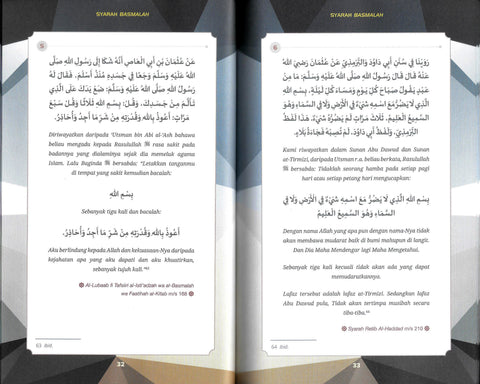 SYARAH BASMALAH
5
عَنْ عُثْمَانَ بْنِ أَبِي الْعَاصِ أَنَّهُ شَكَا إِلَى رَسُولِ اللهِ صَلَّى
اللهُ عَلَيْهِ وَسَلَّمَ وَجَعًا فِي جَسَدِهِ مُنْذُ أَسْلَمَ. فَقَالَ لَهُ
رَسُولُ اللهِ صَلَّى اللهُ عَلَيْهِ وَسَلَّمَ: ضَعْ يَدَكَ عَلَى الَّذِي
تَأَلَّمَ مِنْ جَسَدِكَ. وَقُلْ: بِسْمِ اللهِ ثَلَاثًا وَقُلْ سَبْعَ
مَرَّاتٍ: أَعُوذُ بِاللهِ وَقُدْرَتِهِ مِنْ شَرِّ مَا أَجِدُ وَأُحَاذِرُ.
Diriwayatkan daripada 'Utsman bin Abi al-'Ash bahawa
beliau mengadu kepada Rasulullah ﷺ rasa sakit pada
badannya yang dialaminya sejak dia memeluk agama
Islam. Lalu Baginda ﷺ bersabda: "Letakkan tanganmu
di tempat yang sakit kemudian bacalah:
بِسْمِ اللهِ
Sebanyak tiga kali dan bacalah:
أَعُوذُ بِاللهِ وَقُدْرَتِهِ مِنْ شَرِّ مَا أَجِدُ وَأُحَاذِرُ.
Aku berlindung kepada Allah dan kekuasaan-Nya daripada
kejahatan apa yang aku dapati dan aku khuatirkan,
sebanyak tujuh kali."63
Al-Lubaab fi Tafsiri al-Isti'adzah wa al-Basmalah
wa Faatihah al-Kitab m/s 166
63 Ibid.
32
SYARAH BASMALAH
6
رَوَيْنَا فِي سُنَنِ أَبِي دَاوُدَ وَالتِّرْمِذِيِّ عَنْ عُثْمَانَ رَضِيَ اللهُ
عَنْهُ. قَالَ: قَالَ رَسُولُ اللهِ صَلَّى اللهُ عَلَيْهِ وَسَلَّمَ: مَا مِنْ
عَبْدٍ يَقُولُ صَبَاحَ كُلِّ يَوْمٍ وَمَسَاءَ كُلِّ لَيْلَةٍ. بِسْمِ اللهِ
الَّذِي لَا يَضُرُّ مَعَ اسْمِهِ شَيْءٌ فِي الْأَرْضِ وَلَا فِي السَّمَاءِ
وَهُوَ السَّمِيعُ الْعَلِيمُ. ثَلَاثَ مَرَّاتٍ لَمْ يَضُرَّهُ شَيْءٌ. هَذَا لَفْظُ
التِّرْمِذِيِّ. وَلَفْظُ أَبِي دَاوُدَ. لَمْ تُصِبْهُ فَجْأَةُ بَلَاءٍ.
Kami riwayatkan dalam Sunan Abu Dawud dan Sunan
at-Tirmizi, daripada Utsman r.a. beliau berkata, Rasulullah
ﷺ bersabda: Tidaklah seorang hamba pada setiap pagi
hari atau setiap petang hari mengucapkan:
بِسْمِ اللهِ الَّذِي لَا يَضُرُّ مَعَ اسْمِهِ شَيْءٌ فِي الْأَرْضِ وَلَا فِي
السَّمَاءِ وَهُوَ السَّمِيعُ الْعَلِيمُ
Dengan nama Allah yang apa pun dengan nama-Nya tidak
akan membawa mudarat baik di bumi mahupun di langit.
Dan Dia Maha Mendengar lagi Maha Mengetahui.
Sebanyak tiga kali kecuali tidak akan ada yang dapat
memudaratkannya.
Lafaz tersebut adalah lafaz at-Tirmizi. Sedangkan lafaz
Abu Dawud pula, Tidak akan tertimpa musibah secara
tiba-tiba.64
Syarah Ratib Al-Haddad m/s 210
64 Ibid.
33